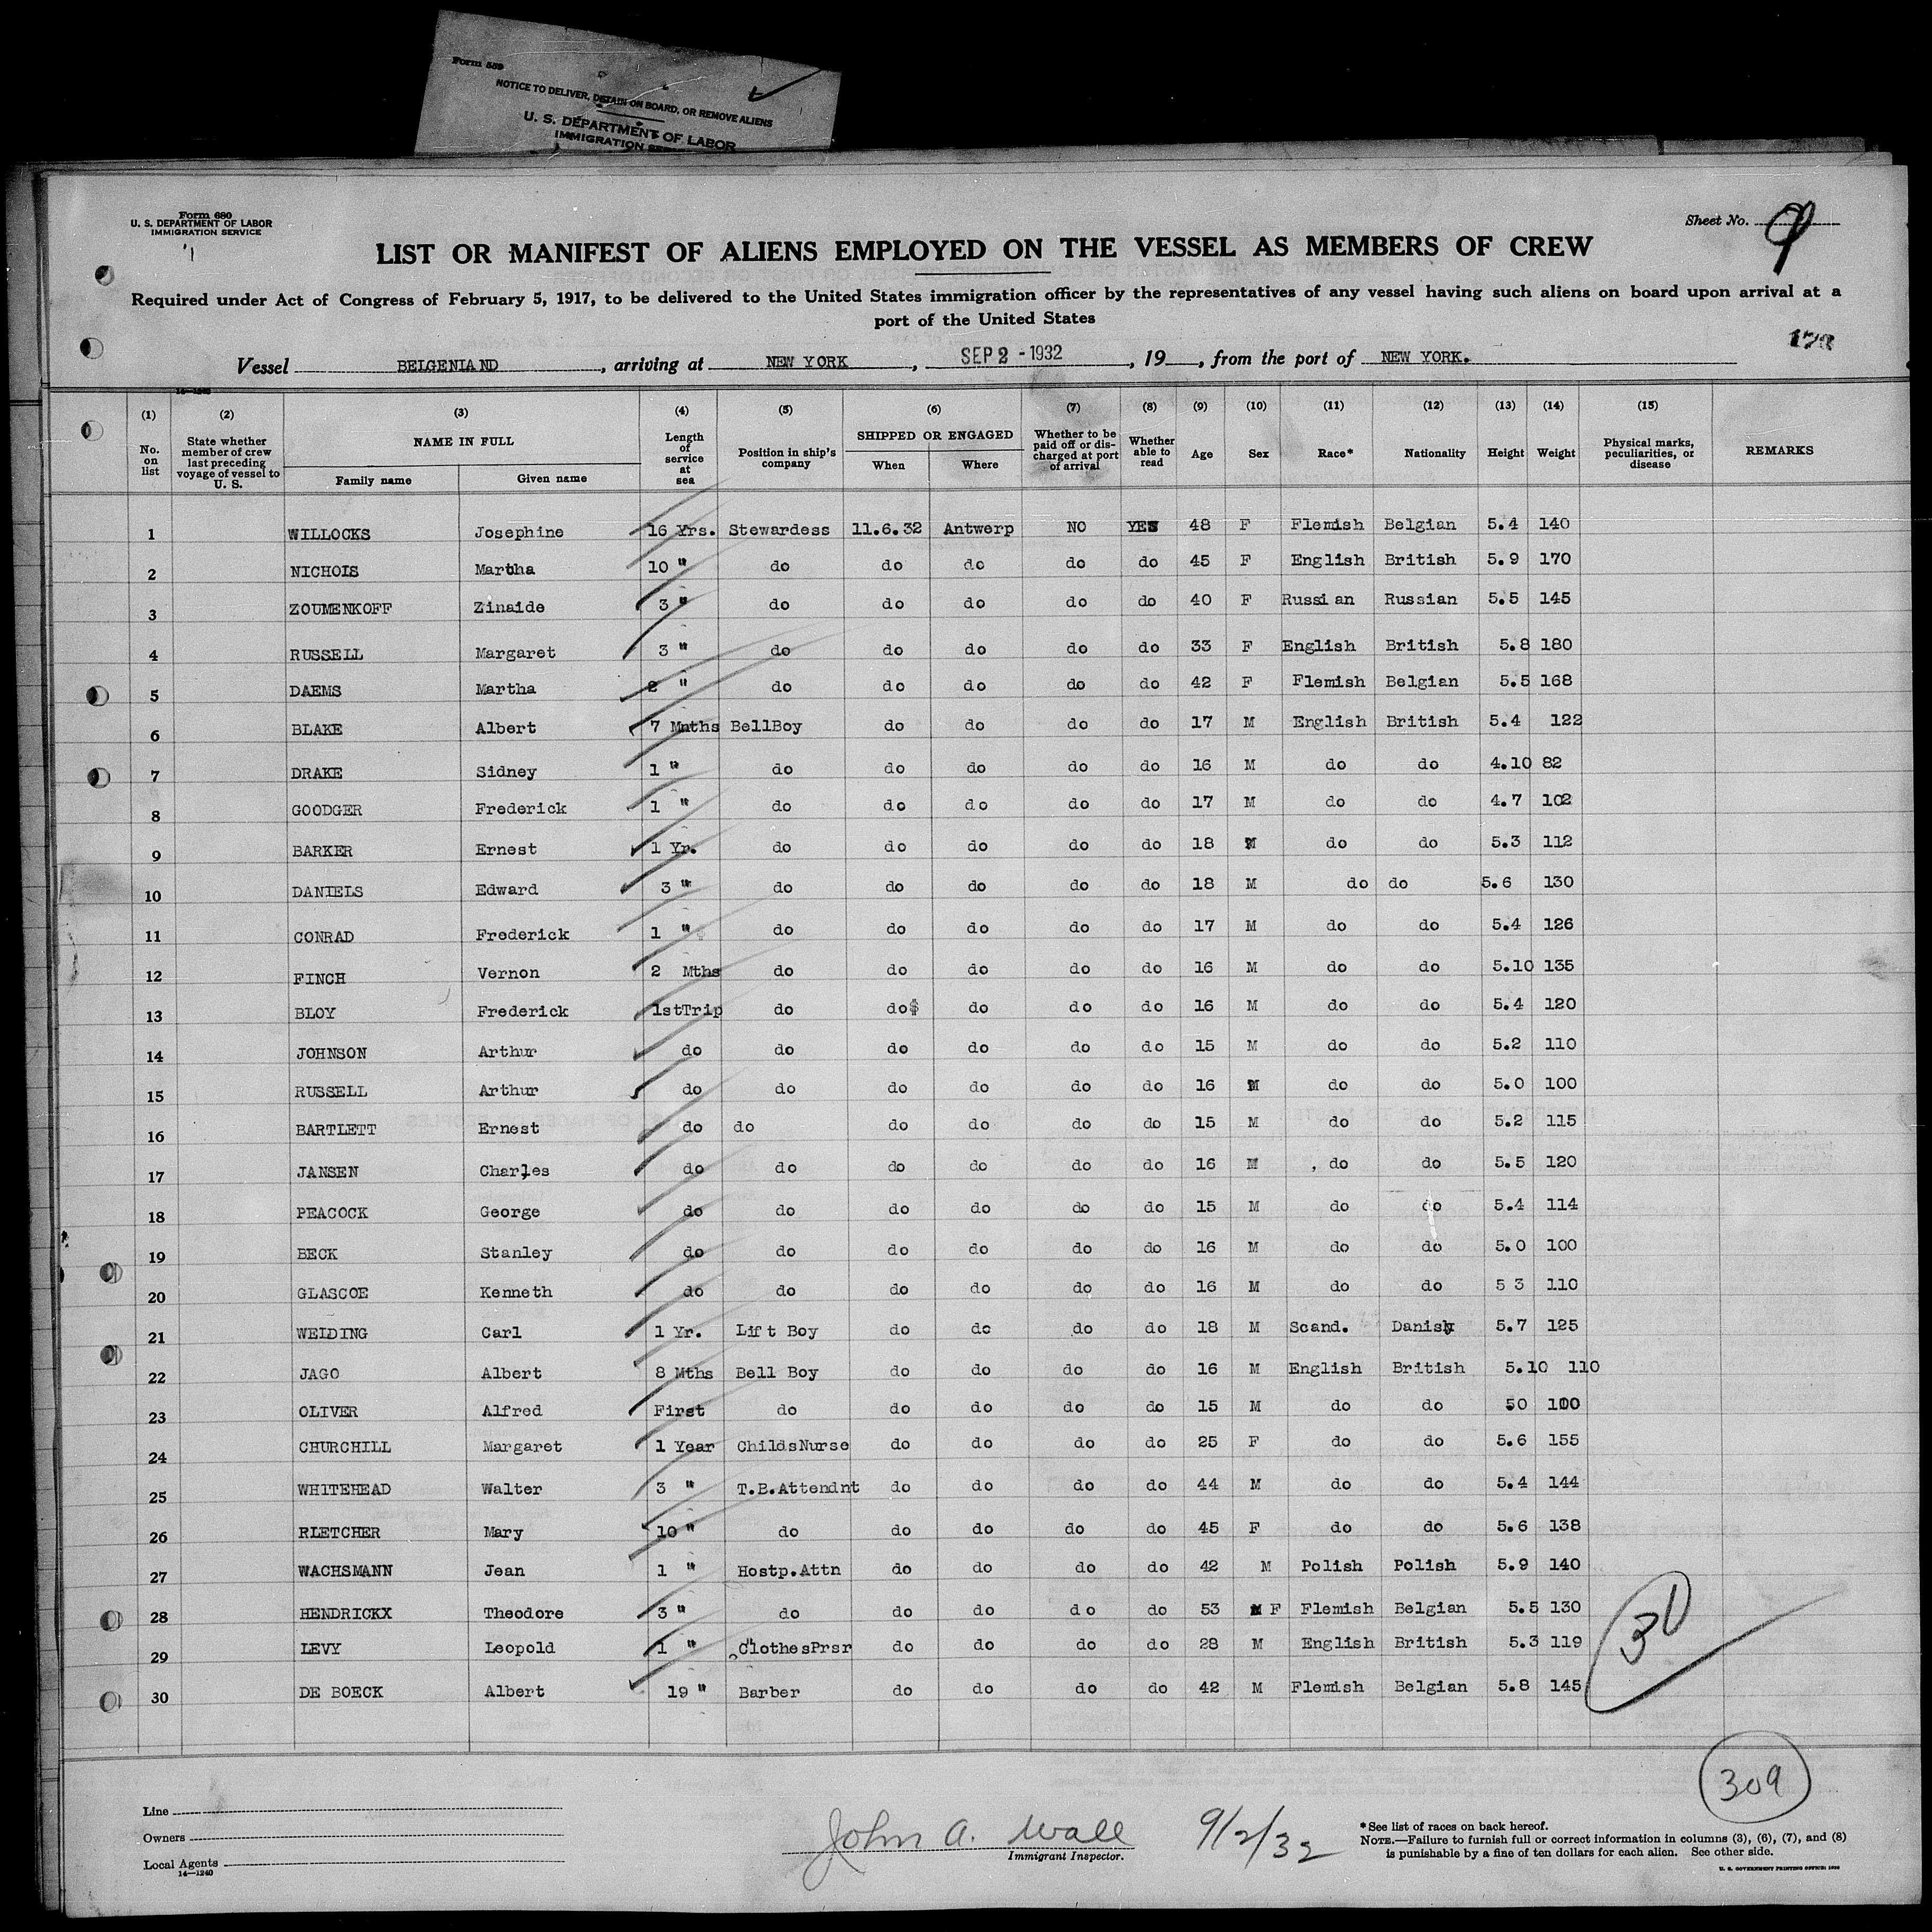 Form 559
NOTICE TO DELIVER, DETAIN ON BOARD, OR REMOVE ALIENS
U. S. DEPARTMENT OF LABOR
IMMIGRATION SERVICE
Form 680
U. S. DEPARTMENT OF LABOR
IMMIGRATION SERVICE
Sheet No. 9
LIST OR MANIFEST OF ALIENS EMPLOYED ON THE VESSEL AS MEMBERS OF CREW
Required under Act of Congress of February 5, 1917, to be delivered to the United States immigration officer by the representatives of any vessel having such aliens on board upon arrival at a
port of the United States
Vessel BELGENIAND, arriving at NEW YORK, SEP 2 - 1932, 19, from the port of NEW YORK.
14—1240
(1) (2) (3) (4) (5) (6) (7) (8) (9) (10) (11) (12) (13) (14) (15)
No. on list State whether member of crew last preceding voyage of vessel to U. S. NAME IN FULL Length of service at sea Position in ship's company SHIPPED OR ENGAGED Whether to be paid off or discharged at port of arrival Whether able to read Age Sex Race* Nationality Height Weight Physical marks, peculiarities, or disease REMARKS
Family name Given name When Where
1 WILLOCKS Josephine 16 Yrs. Stewardess 11.6.32 Antwerp NO YES 48 F Flemish Belgian 5.4 140
2 NICHOIS Martha 10 " do do do do do 45 F English British 5.9 170
3 ZOUMENKOFF Zinaide 3 " do do do do do 40 F Russian Russian 5.5 145
4 RUSSELL Margaret 3 " do do do do do 33 F English British 5.8 180
5 DAEMS Martha 2 " do do do do do 42 F Flemish Belgian 5.5 168
6 BLAKE Albert 7 Mnths BellBoy do do do do 17 M English British 5.4 122
7 DRAKE Sidney 1 " do do do do do 16 M do do 4.10 82
8 GOODGER Frederick 1 " do do do do do 17 M do do 4.7 102
9 BARKER Ernest 1 Yr. do do do do do 18 M do do 5.3 112
10 DANIELS Edward 3 " do do do do do 18 M do do 5.6 130
11 CONRAD Frederick 1 " do do do do do 17 M do do 5.4 126
12 FINCH Vernon 2 Mths do do do do do 16 M do do 5.10 135
13 BLOY Frederick 1stTrip do do$ do do do 16 M do do 5.4 120
14 JOHNSON Arthur do do do do do do 15 M do do 5.2 110
15 RUSSELL Arthur do do do do do do 16 M do do 5.0 100
16 BARTLETT Ernest do do do do do do 15 M do do 5.2 115
17 JANSEN Charles do do do do do do 16 M do do 5.5 120
18 PEACOCK George do do do do do do 15 M do do 5.4 114
19 BECK Stanley do do do do do do 16 M do do 5.0 100
20 GLASCOE Kenneth do do do do do do 16 M do do 5 3 110
21 WEIDING Carl 1 Yr. Lift Boy do do do do 18 M Scand. Danish 5.7 125
22 JAGO Albert 8 Mths Bell Boy do do do do 16 M English British 5.10 110
23 OLIVER Alfred First do do do do do 15 M do do 50 100
24 CHURCHILL Margaret 1 Year ChildsNurse do do do do 25 F do do 5.6 155
25 WHITEHEAD Walter 3 " T.B.Attendnt do do do do 44 M do do 5.4 144
26 RLETCHER Mary 10 " do do do do do 45 F do do 5.6 138
27 WACHSMANN Jean 1 " Hostp.Attn do do do do 42 M Polish Polish 5.9 140
28 HENDRICKX Theodore 3 " do do do do do 53 F Flemish Belgian 5.5 130
29 LEVY Leopold 1 " ClothesPrsr do do do do 28 M English British 5.3 119
30 DE BOECK Albert 19 " Barber do do do do 42 M Flemish Belgian 5.8 145
30
309
Line
Owners
Local Agents
14—1240
John A. Wall 9/2/32
Immigrant Inspector.
*See list of races on back hereof.
NOTE.—Failure to furnish full or correct information in columns (3), (6), (7), and (8)
is punishable by a fine of ten dollars for each alien. See other side.